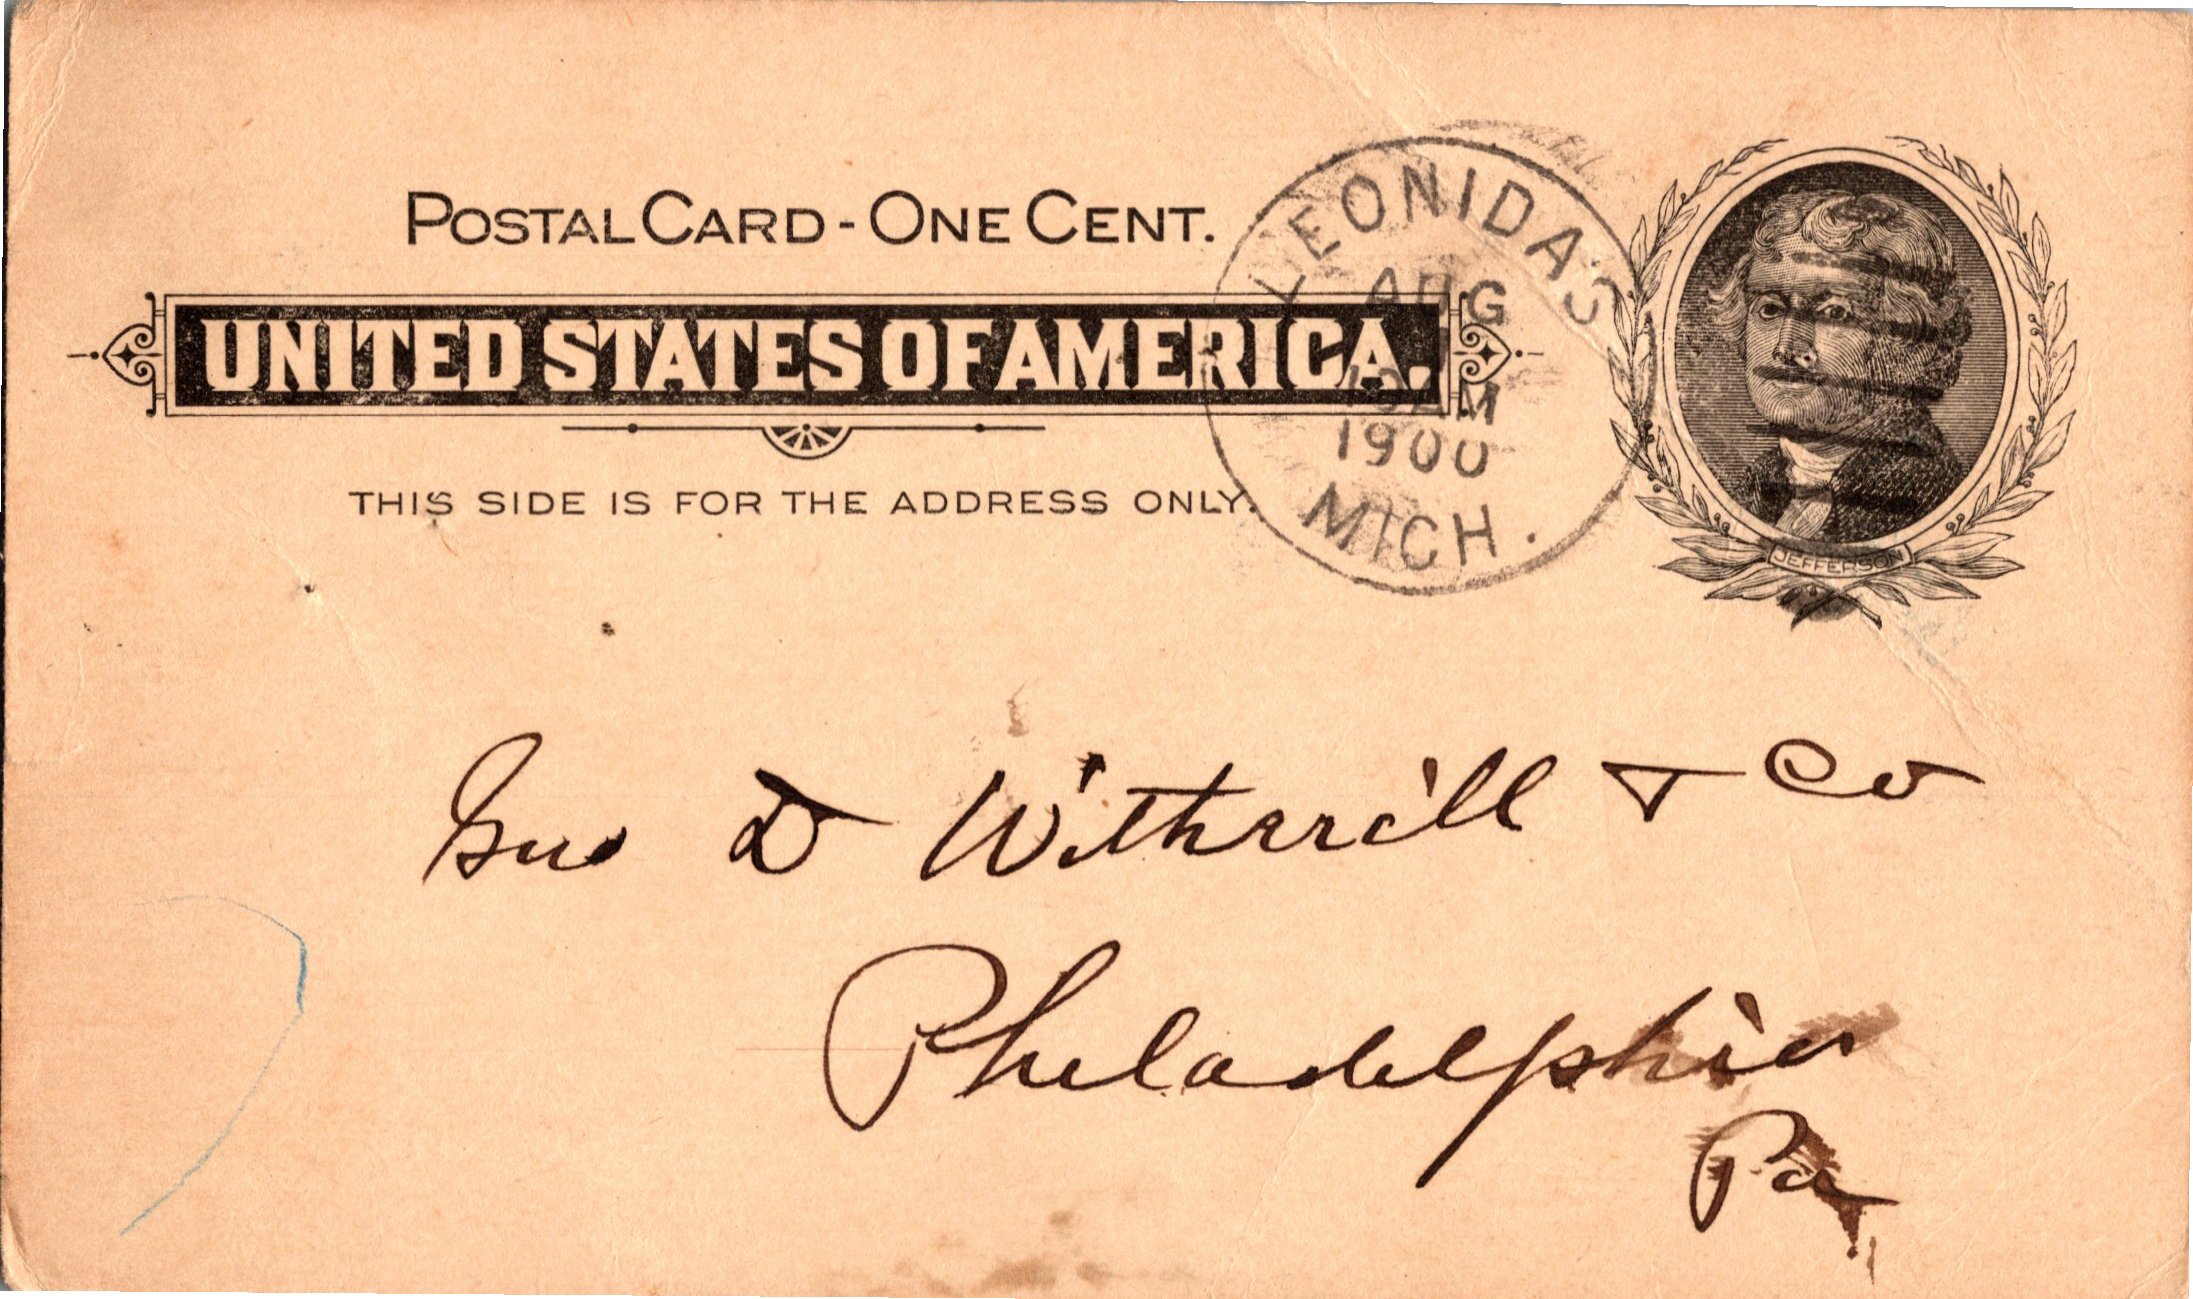 POSTAL CARD - ONE CENT.
UNITED STATES OF AMERICA.
THIS SIDE IS FOR THE ADDRESS ONLY.
LEONIDAS
AUG
1900
MICH.
JEFFERSON
Geo D Witherill & Co
Philadelphia
Pa